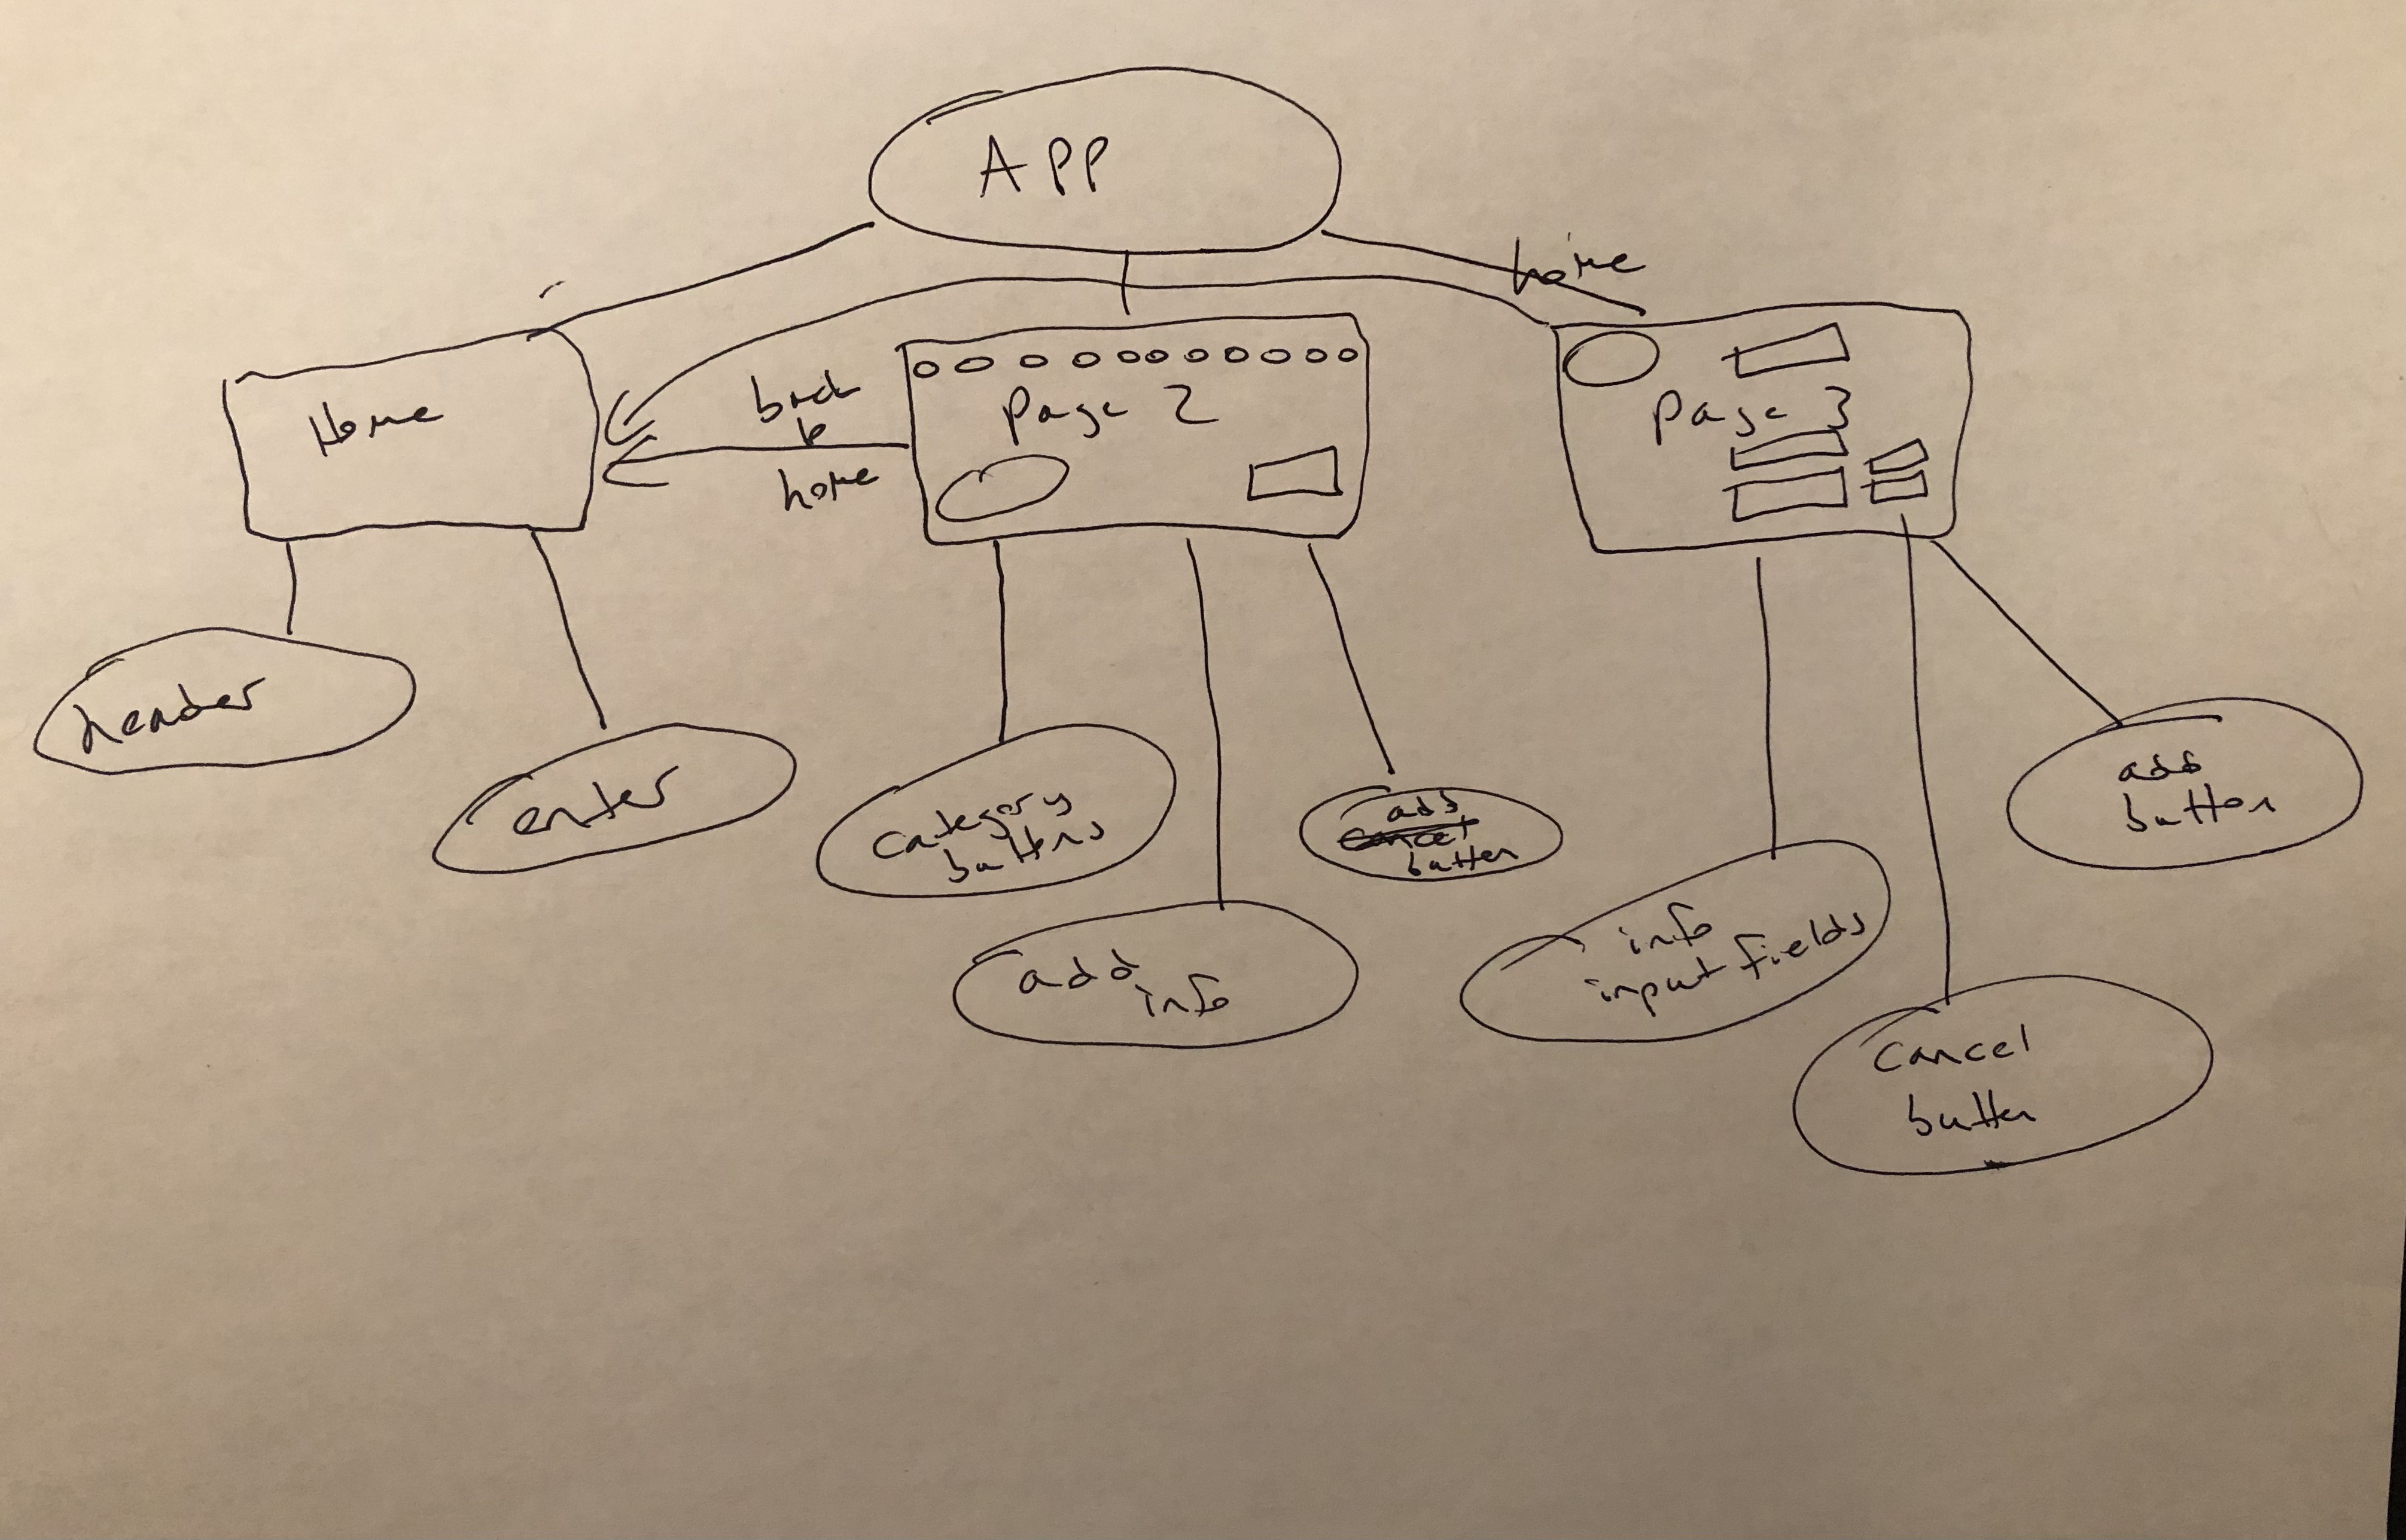 APP
home
Home
back
to
home
Page 2
Page 3
header
enter
category
buttons
add
cancel
button
add
info
info
input fields
cancel
button
add
button